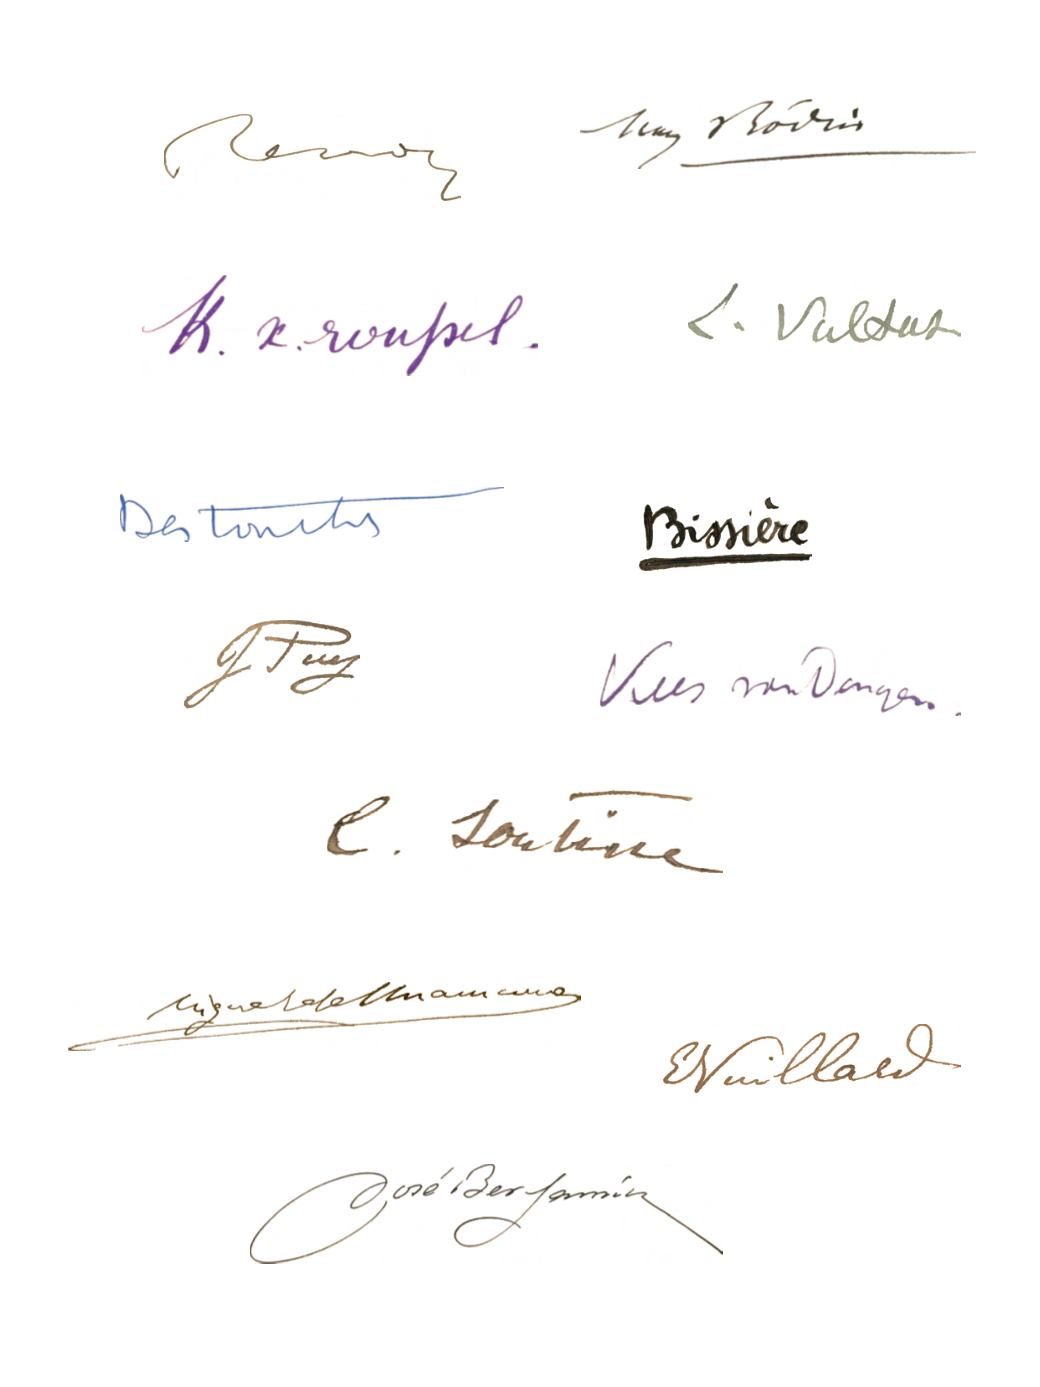 Renoir
Aug Rodin
K. x. roussel.
L. Valtat
Destouches
Bissière
J Puy
Kees van Dongen.
C. Soutine
Miguel de Unamuno
E Vuillard
José Bergamín